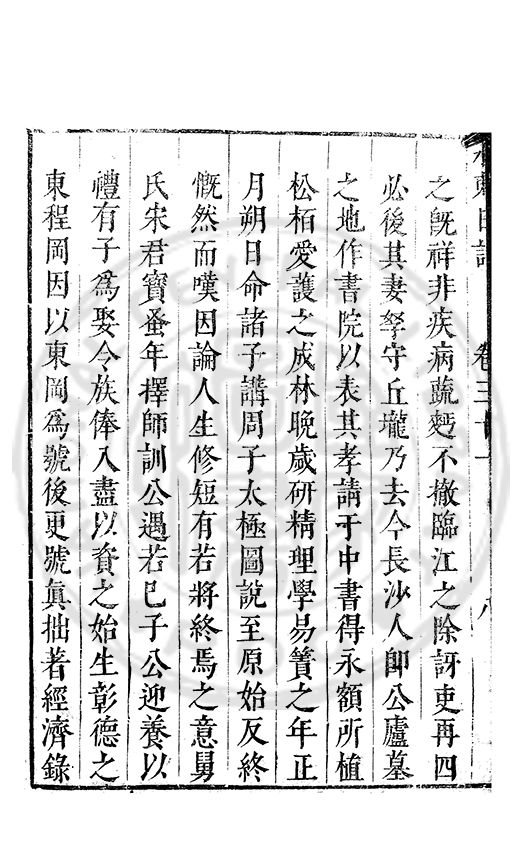 水東日記 卷三十一 八
之既祥非疾病蔬麪不撤臨江之除訝吏再四
必後其妻孥守丘壠乃去今長沙人卽公廬墓
之地作書院以表其孝請于中書得永額所植
松栢愛護之成林晚歲研精理學易簀之年正
月朔日命諸子講周子太極圖說至原始反終
慨然而嘆因論人生修短有若將終焉之意舅
氏宋君寳蚤年擇師訓公遇若已子公迎養以
禮有子爲娶令族俸入盡以資之始生彰德之
東程岡因以東岡爲號後更號眞拙著經濟錄